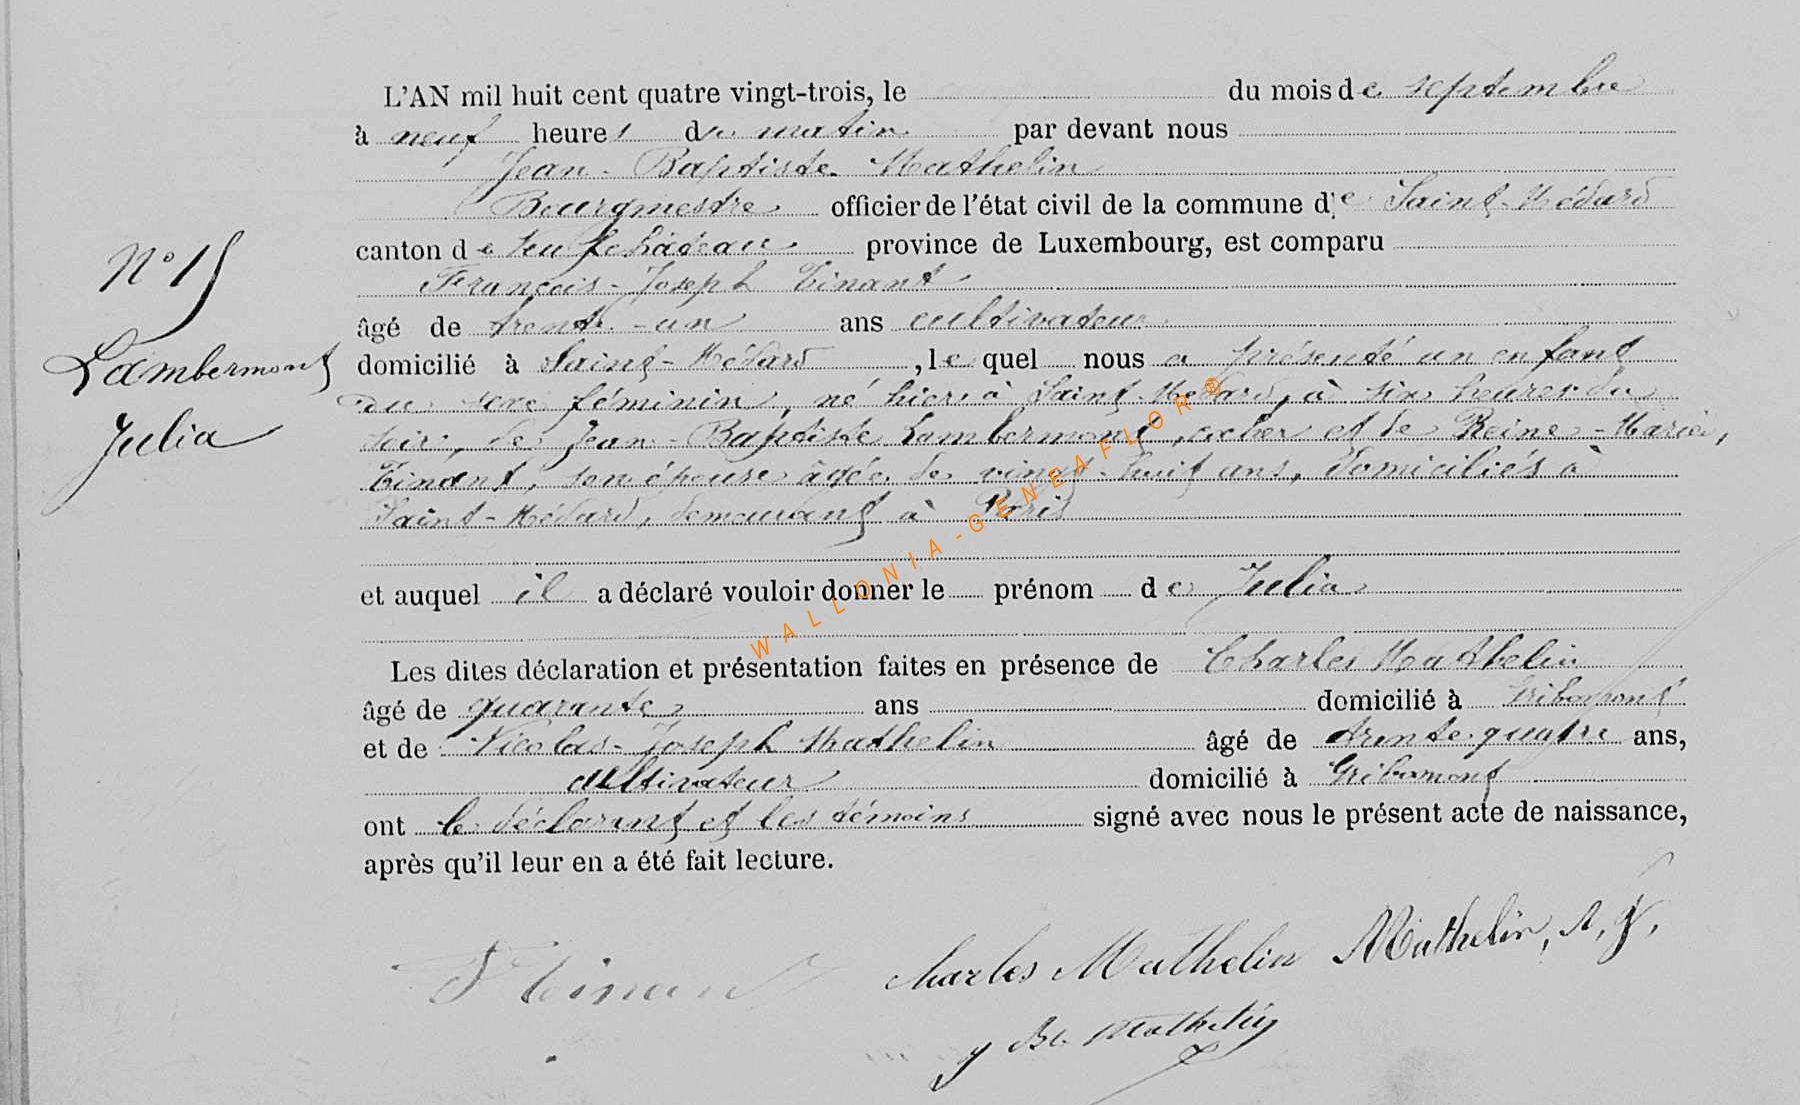 L'AN mil huit cent quatre vingt-trois, le du mois de septembre
à neuf heures du matin par devant nous
Jean-Baptiste Mathelin
Bourgmestre officier de l'état civil de la commune de Saint-Médard
canton de Neufchâteau province de Luxembourg, est comparu
François-Joseph Tinant
âgé de trente-un ans cultivateur
domicilié à Saint-Médard, lequel nous a présenté un enfant
du sexe féminin, né hier à Saint-Médard, à six heures du
soir, de Jean-Baptiste Lambermont, cocher et de Reine-Marie,
Tinant, son épouse âgée de vingt-huit ans, domiciliés à
Saint-Médard, demeurant à Paris
et auquel il a déclaré vouloir donner le prénom de Julia
Les dites déclaration et présentation faites en présence de Charles Mathelin
âgé de quarante ans domicilié à Gribomont
et de Nicolas-Joseph Mathelin âgé de trente-quatre ans,
cultivateur domicilié à Gribomont
ont le déclarant et les témoins signé avec nous le présent acte de naissance,
après qu'il leur en a été fait lecture.
N° 15
Lambermont
Julia
F Tinant
Charles Mathelin
Mathelin, N, J,
J Bte Mathelin
WALLONIA-GENEAFLOR®